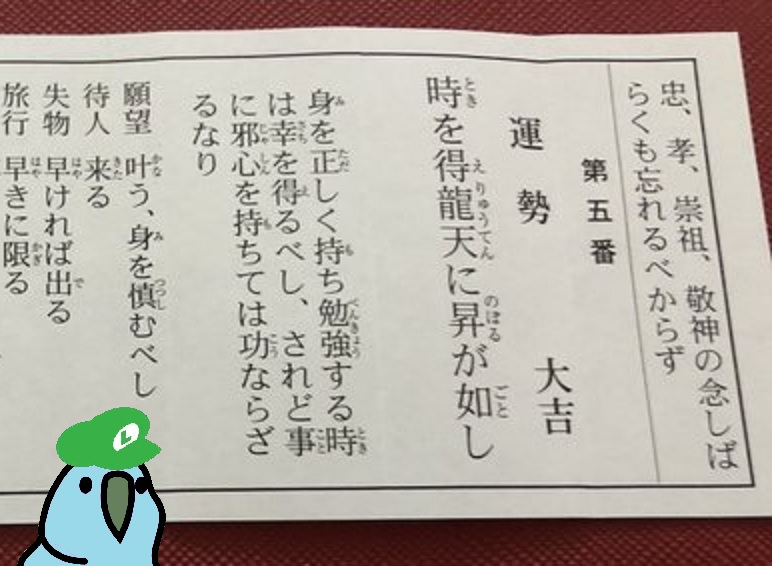 忠、孝、崇祖、敬神の念しば
らくも忘れるべからず
第五番
運勢 大吉
時を得龍天に昇が如し
身を正しく持ち勉強する時
は幸を得るべし、されど事
に邪心を持ちては功ならざ
るなり
願望 叶う、身を慎むべし
待人 来る
失物 早ければ出る
旅行 早きに限る
L